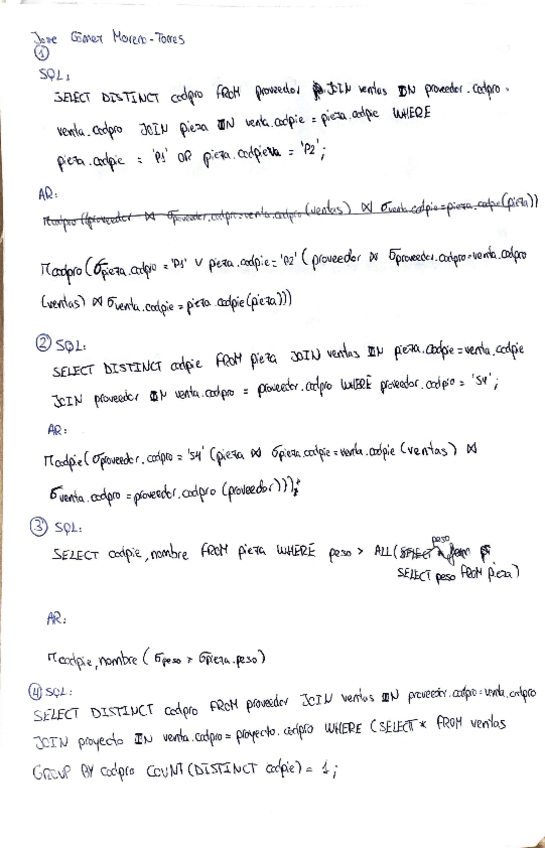 Jose Gómez Moreno-Torres
①
SQL:
SELECT DISTINCT codpro FROM proveedor JOIN ventas ON proveedor.codpro =
venta.codpro JOIN pieza ON venta.codpie = pieza.codpie WHERE
pieza.codpie = 'P1' OR pieza.codpieza = 'P2';
AR:
πcodpro((proveedor ⋈ σproveedor.codpro=venta.codpro(ventas) ⋈ σventa.codpie=pieza.codpie(pieza))
πcodpro(σpieza.codpro = 'P1' ∨ pieza.codpie = 'P2' (proveedor ⋈ σproveedor.codpro=venta.codpro
(ventas) ⋈ σventa.codpie = pieza.codpie(pieza)))
② SQL:
SELECT DISTINCT codpie FROM pieza JOIN ventas IN pieza.codpie=venta.codpie
JOIN proveedor ON venta.codpro = proveedor.codpro WHERE proveedor.codpro = 'S4';
AR:
πcodpie(σproveedor.codpro = 'S4' (pieza ⋈ σpieza.codpie=venta.codpie (ventas) ⋈
σventa.codpro = proveedor.codpro (proveedor)));
③ SQL:
SELECT codpie, nombre FROM pieza WHERE peso > ALL(SELECT peso
SELECT peso FROM pieza)
AR:
πcodpie,nombre (σpeso > σpieza.peso)
④ SQL:
SELECT DISTINCT codpro FROM proveedor JOIN ventas ON proveedor.codpro=venta.codpro
JOIN proyecto IN venta.codpro = proyecto.codpro WHERE (SELECT * FROM ventas
GROUP BY codpro COUNT(DISTINCT codpie) = 1;